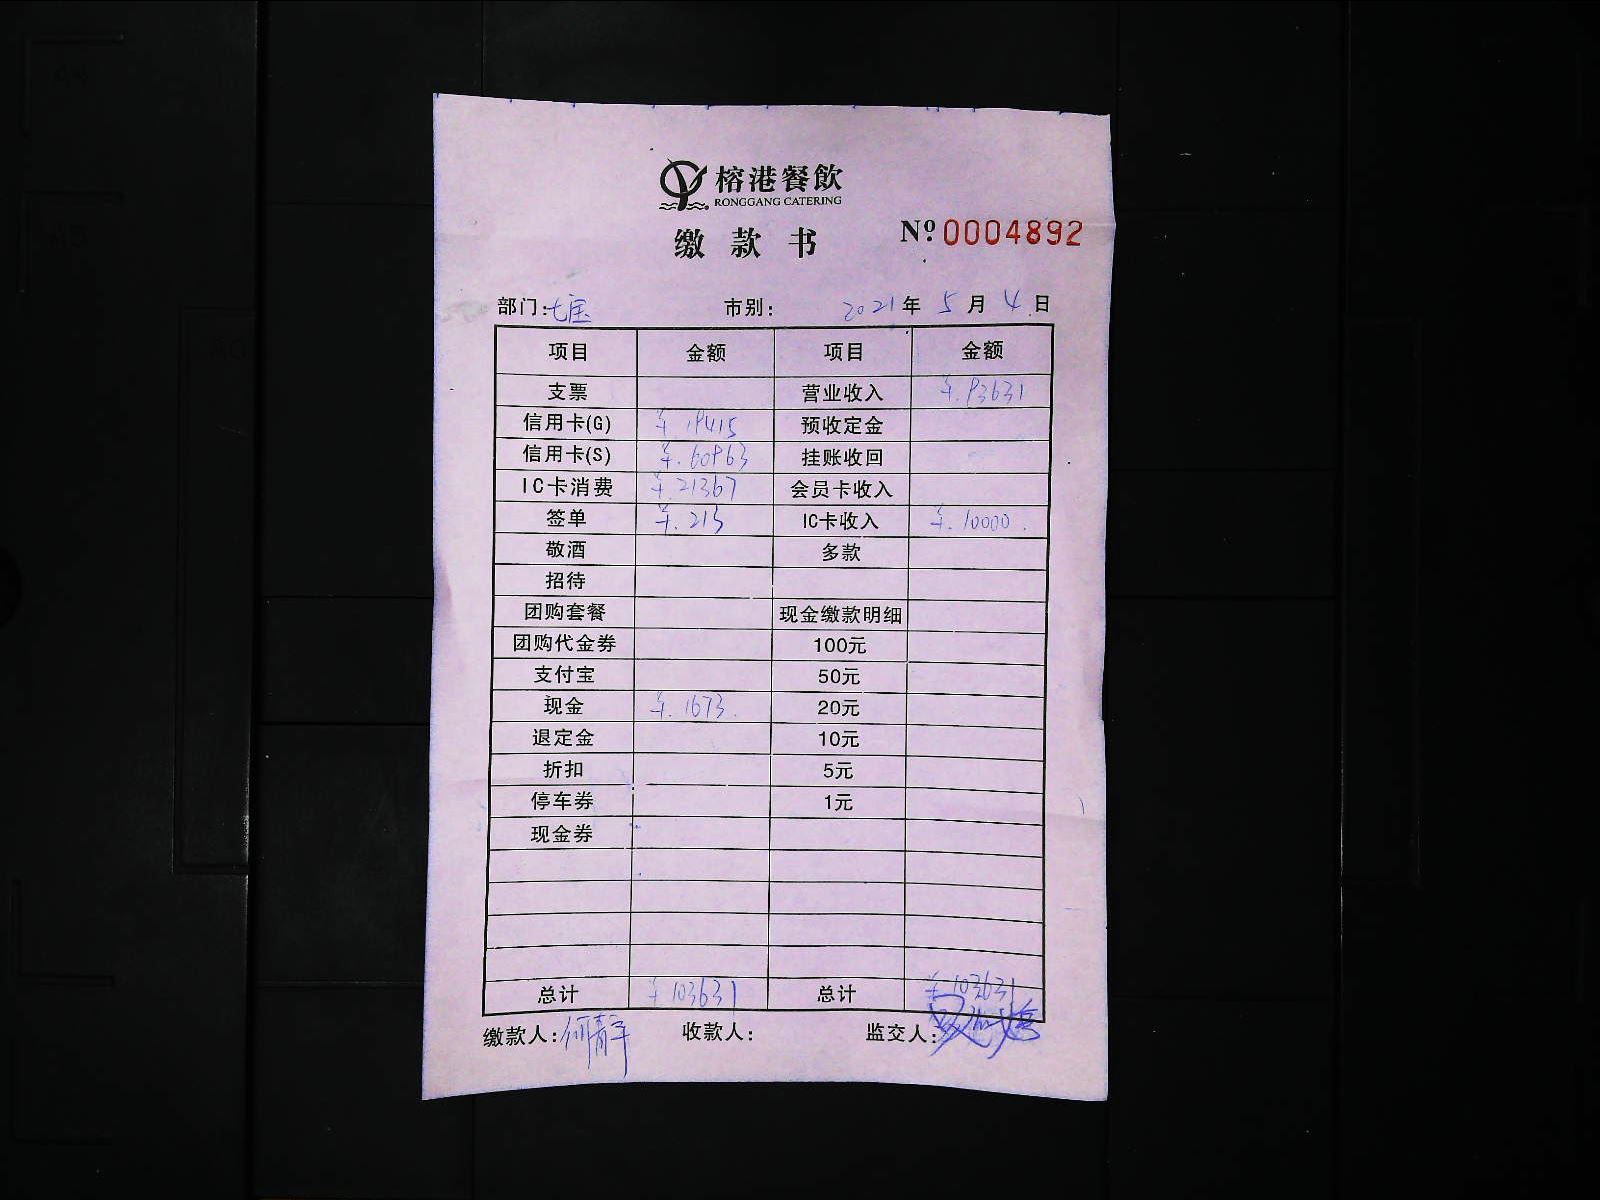 榕港餐飲
RONGGANG CATERING
缴款书 Nº 0004892
部门:七宝 市别: 2021年5月4日
项目 金额 项目 金额
支票 营业收入 ¥.93631
信用卡(G) ¥.19415 预收定金
信用卡(S) ¥.60963 挂账收回
IC卡消费 ¥.21367 会员卡收入
签单 ¥.213 IC卡收入 ¥.10000.
敬酒 多款
招待
团购套餐 现金缴款明细
团购代金券 100元
支付宝 50元
现金 ¥.1673. 20元
退定金 10元
折扣 5元
停车券 1元
现金券
总计 ¥103631 总计 ¥103631
缴款人: 收款人: 监交人: